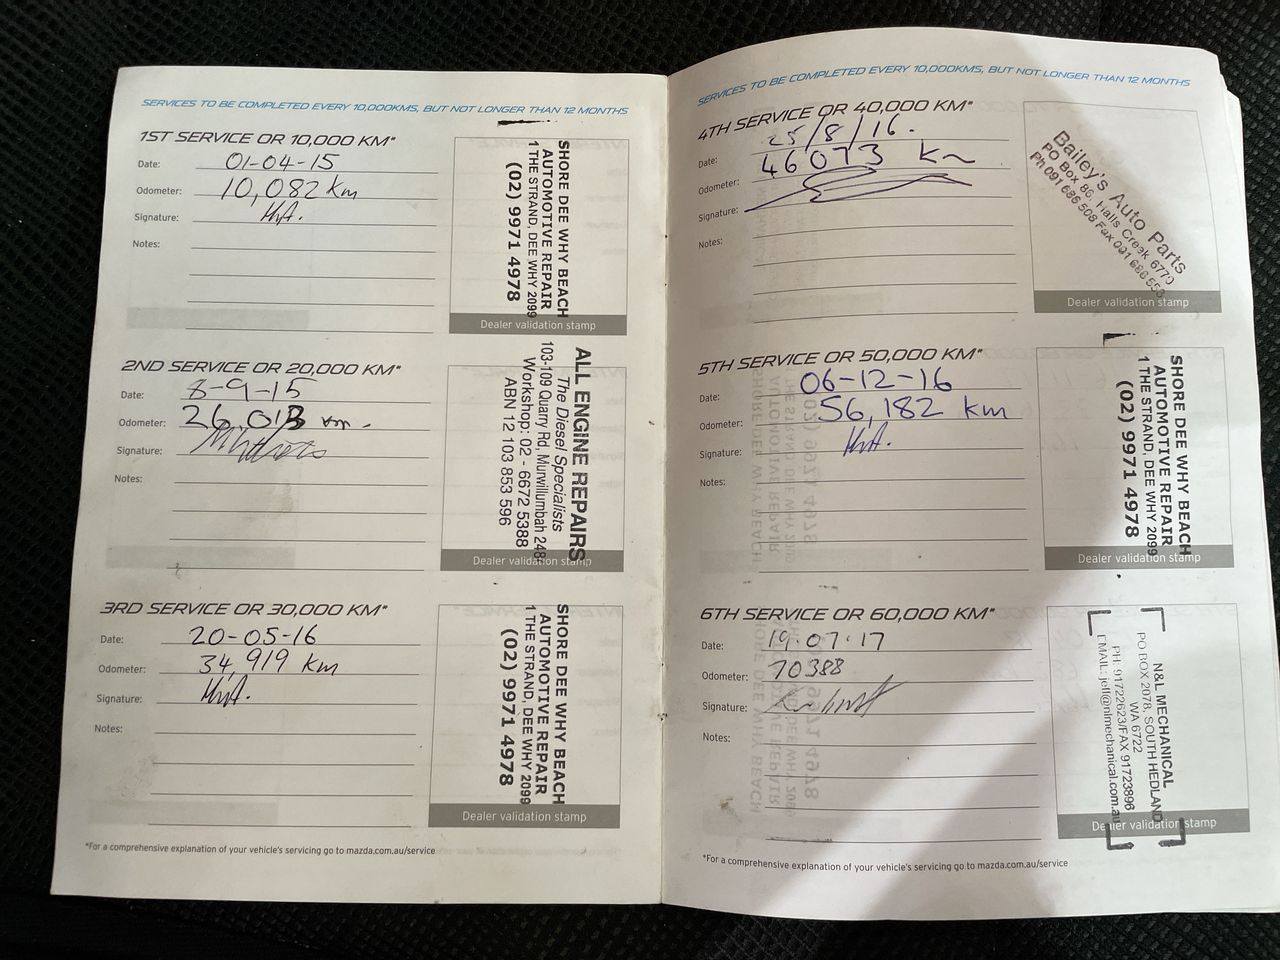 SERVICES TO BE COMPLETED EVERY 10,000KMS, BUT NOT LONGER THAN 12 MONTHS
1ST SERVICE OR 10,000 KM*
Date: 01-04-15
Odometer: 10,082 km
Signature:
Notes:
SHORE DEE WHY BEACH
AUTOMOTIVE REPAIR
1 THE STRAND, DEE WHY 2099
(02) 9971 4978
Dealer validation stamp
2ND SERVICE OR 20,000 KM*
Date: 8-9-15
Odometer: 26,013 km.
Signature:
Notes:
ALL ENGINE REPAIRS
The Diesel Specialists
103-109 Quarry Rd, Murwillumbah 248
Workshop: 02 - 6672 5388
ABN 12 103 853 596
Dealer validation stamp
3RD SERVICE OR 30,000 KM*
Date: 20-05-16
Odometer: 34,919 km
Signature:
Notes:
SHORE DEE WHY BEACH
AUTOMOTIVE REPAIR
1 THE STRAND, DEE WHY 2099
(02) 9971 4978
Dealer validation stamp
*For a comprehensive explanation of your vehicle's servicing go to mazda.com.au/service
SERVICES TO BE COMPLETED EVERY 10,000KMS, BUT NOT LONGER THAN 12 MONTHS
4TH SERVICE OR 40,000 KM*
Date: 25/8/16.
Odometer: 46073 km
Signature:
Notes:
Bailey's Auto Parts
PO Box 86, Halls Creek 6770
Ph 091 686 508 Fax 091 686 550
Dealer validation stamp
5TH SERVICE OR 50,000 KM*
Date: 06-12-16
Odometer: 56,182 km
Signature:
Notes:
SHORE DEE WHY BEACH
AUTOMOTIVE REPAIR
1 THE STRAND, DEE WHY 2099
(02) 9971 4978
Dealer validation stamp
6TH SERVICE OR 60,000 KM*
Date: 19.07.17
Odometer: 70388
Signature:
Notes:
N&L MECHANICAL
PO BOX 2078, SOUTH HEDLAND
WA 6722
PH: 91722623/FAX 91723896
EMAIL: jeff@nlmechanical.com.au
Dealer validation stamp
*For a comprehensive explanation of your vehicle's servicing go to mazda.com.au/service